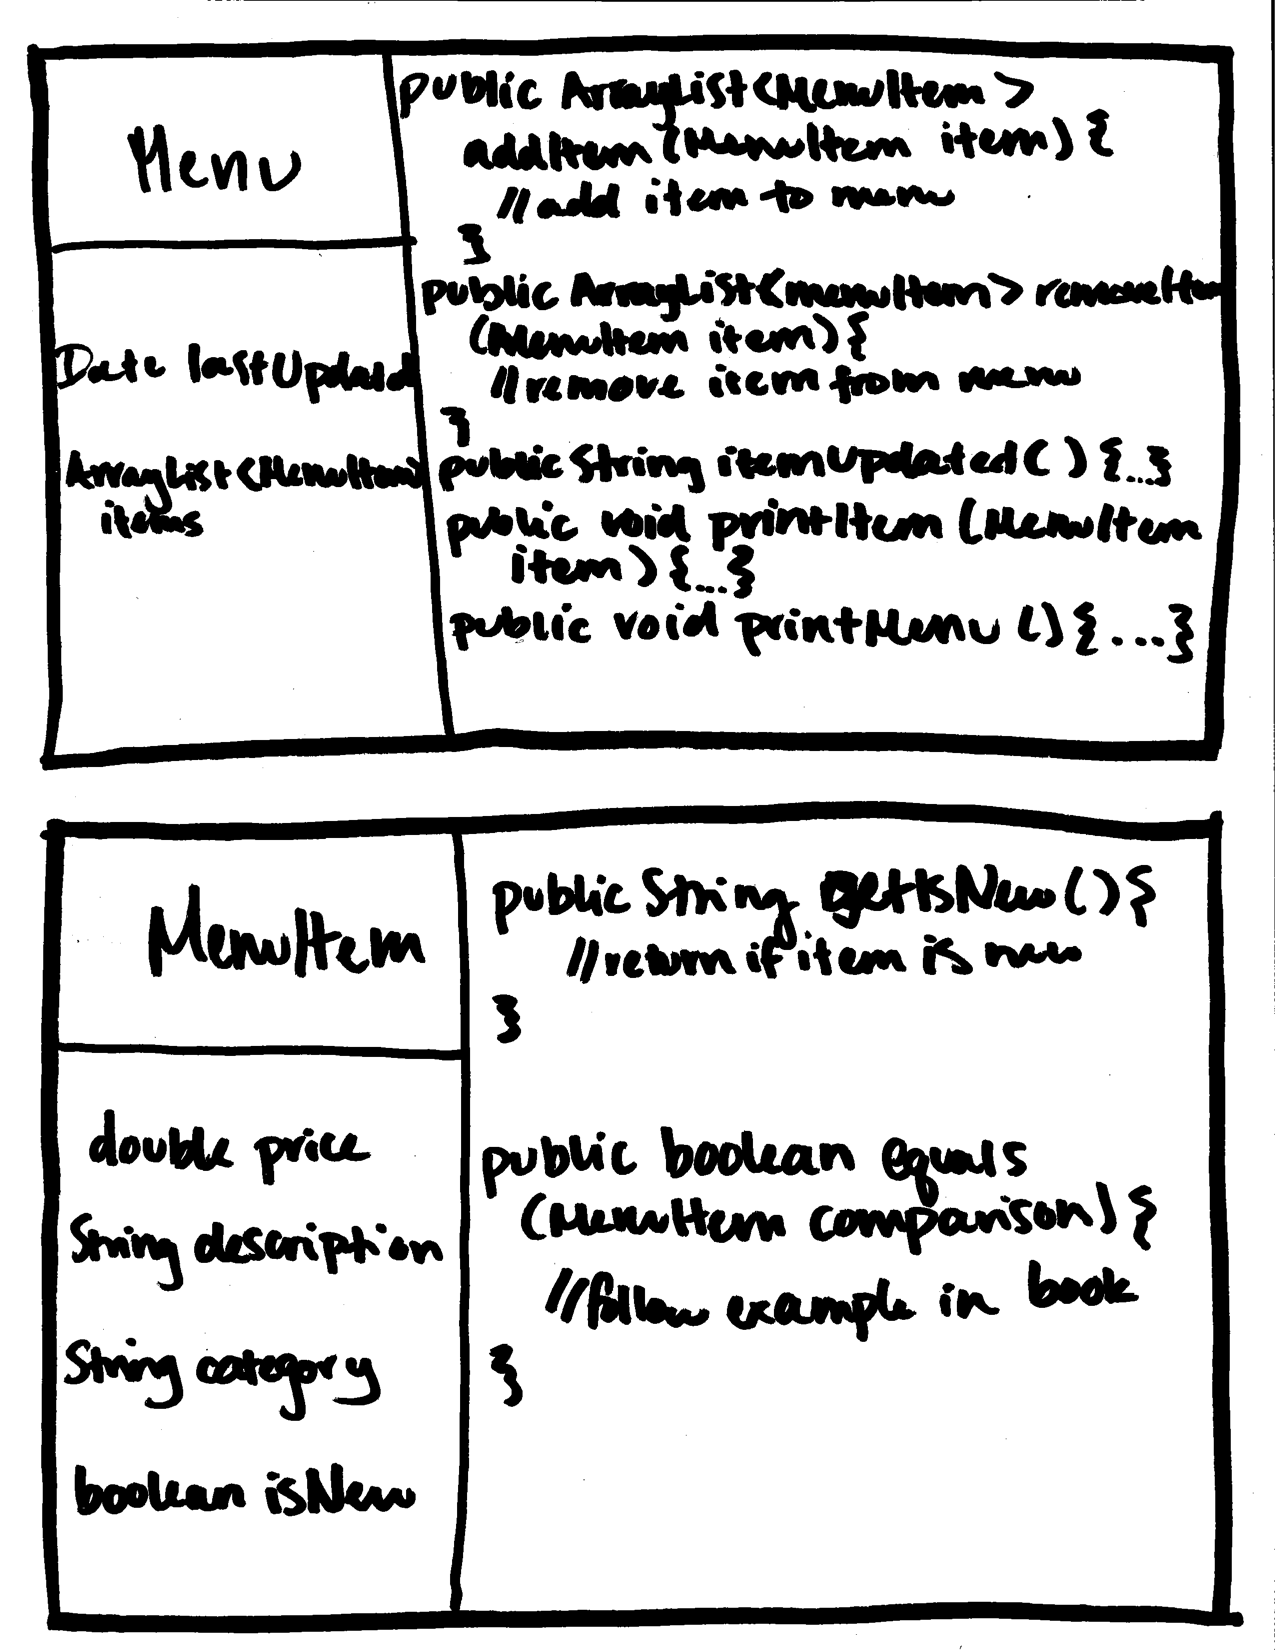 Menu
Date lastUpdated
ArrayList<MenuItem>
items
public ArrayList<MenuItem>
addItem (MenuItem item) {
//add item to menu
}
public ArrayList<menuItem> removeItem
(MenuItem item) {
//remove item from menu
}
public String itemUpdated( ) {...}
public void printItem (MenuItem
item) {...}
public void printMenu () {...}
MenuItem
double price
String description
String category
boolean isNew
public String getIsNew () {
//return if item is new
}
public boolean equals
(MenuItem comparison) {
//follow example in book
}